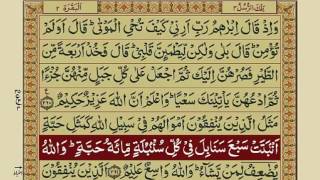 تلك الرسل ٣ البقرة ٢
وَاِذْ قَالَ اِبْرٰهٖمُ رَبِّ اَرِنِیْ كَیْفَ تُحْیِ الْمَوْتٰی ؕ قَالَ اَوَلَمْ
تُؤْمِنْ ؕ قَالَ بَلٰی وَلٰكِنْ لِّیَطْمَىِٕنَّ قَلْبِیْ ؕ قَالَ فَخُذْ اَرْبَعَةً مِّنَ
الطَّیْرِ فَصُرْهُنَّ اِلَیْكَ ثُمَّ اجْعَلْ عَلٰی كُلِّ جَبَلٍ مِّنْهُنَّ جُزْءًا
ثُمَّ ادْعُهُنَّ یَاْتِیْنَكَ سَعْیًا ؕ وَاعْلَمْ اَنَّ اللّٰهَ عَزِیْزٌ حَكِیْمٌ ﴿۲۶۰﴾
مَثَلُ الَّذِیْنَ یُنْفِقُوْنَ اَمْوَالَهُمْ فِیْ سَبِیْلِ اللّٰهِ كَمَثَلِ حَبَّةٍ
اَنْۢبَتَتْ سَبْعَ سَنَابِلَ فِیْ كُلِّ سُنْۢبُلَةٍ مِّائَةُ حَبَّةٍ ؕ وَاللّٰهُ
یُضٰعِفُ لِمَنْ یَّشَآءُ ؕ وَاللّٰهُ وَاسِعٌ عَلِیْمٌ ﴿۲۶۱﴾ اَلَّذِیْنَ یُنْفِقُوْنَ